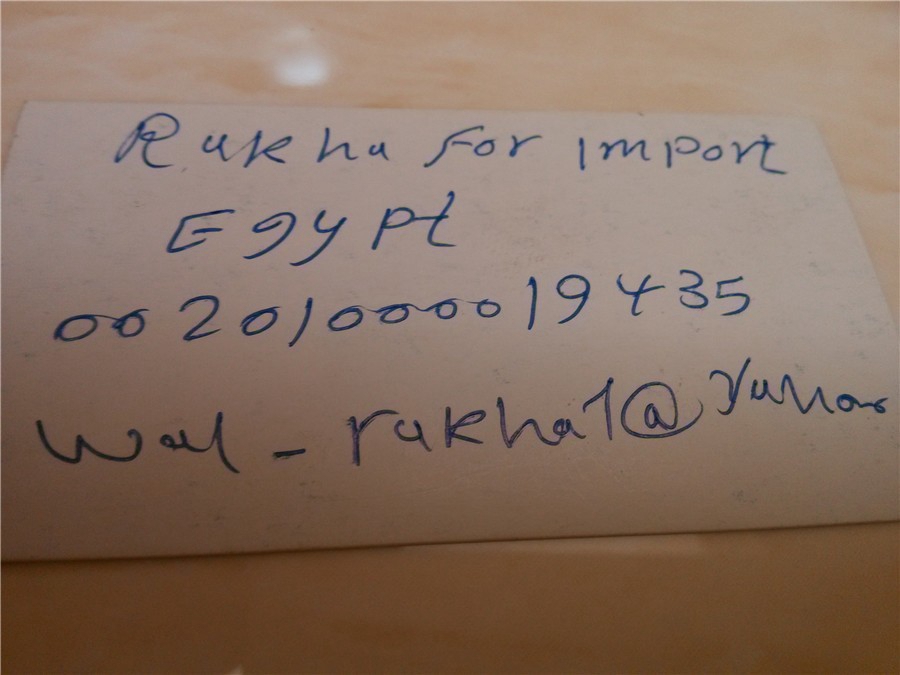 Rakha For import
Egypt
00201000019435
wal_rakha1@Yahoo